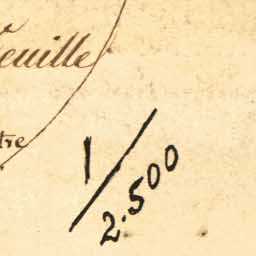 euille
tre
1/2.500